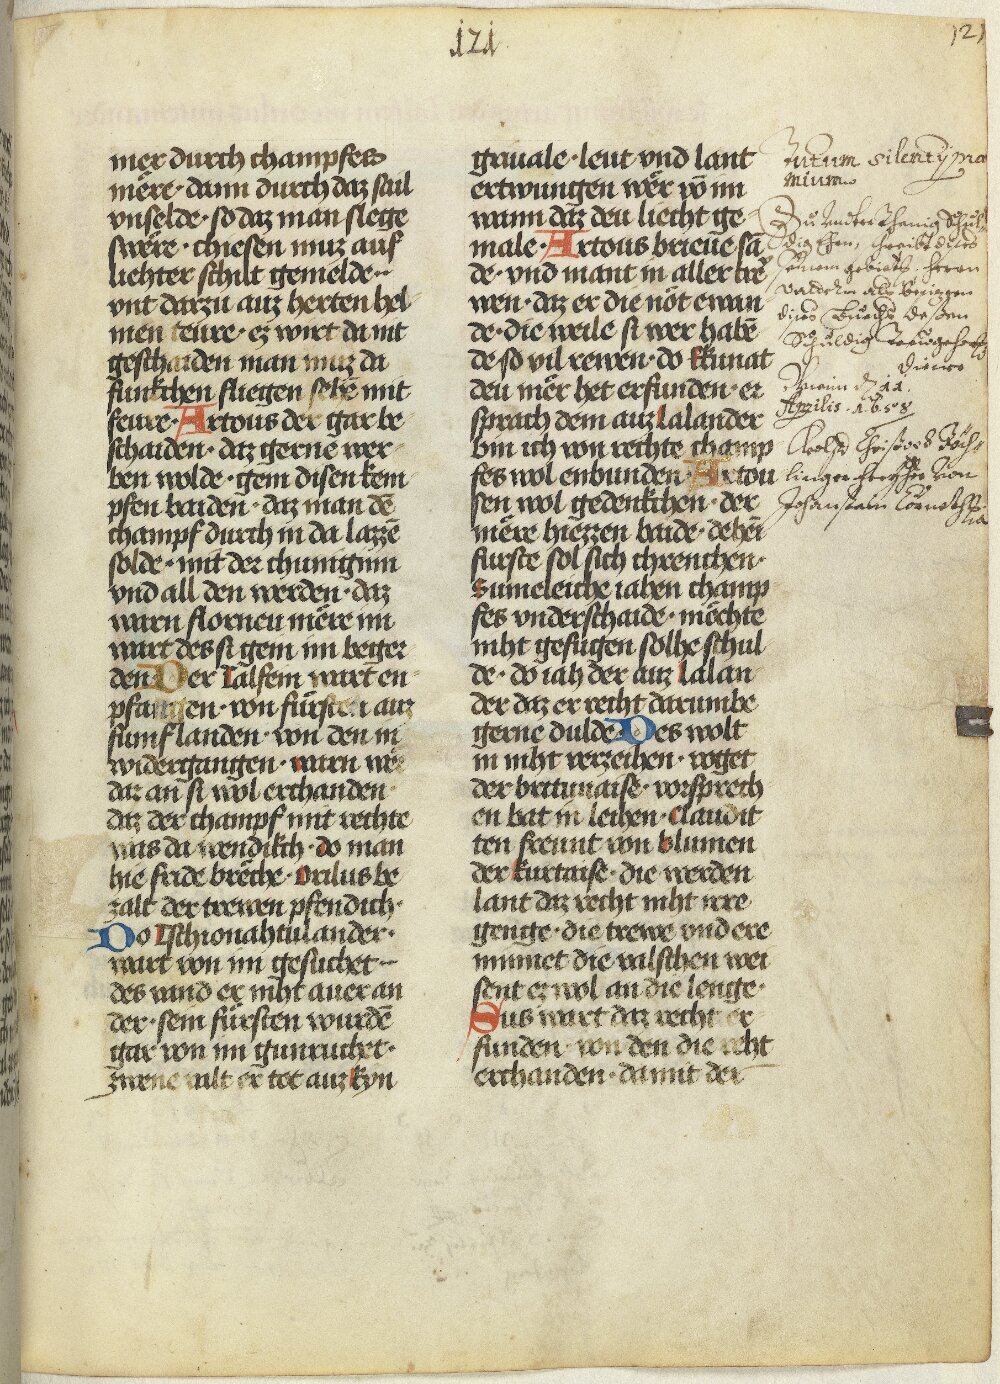 121
121
mer durch champfes
mêre · dann durch daz sail
vnselde · so daz man slege
swêre · chiesen muz auf
liehter schilt gemelde ·
vnt darzu auz herten hel
men teure · ez wirt da nit
geschaiden man muz da
funkchen fliegen sehē mit
feure · Artous der gar be
schaiden · daz gerne wer
ben wolde · gein disen kem
pfen baiden · daz man dē
champf durch in da lazzē
solde · mit der chuniginn
vnd all den werden · daz
warn florneu mêre im
wart des si gein im beger
den Der Talfein wart en
pfangen · von fürsten auz
funf landen · von den in
widergangen · warn wê
daz an si wol erchanden
daz der champf mit rechte
was da wendikch · do man
hie fride brêche · Orilus be
zalt der trewen pfendich ·
Do Tschionahtulander ·
wart von im gesuchet
des vand er niht auer an
der · sein fürsten wurdē
gar von im gunruchet ·
zwene valt er tot auz kyn
griuale · leut vnd lant
ertwungen wêr vō im
wann daz deu liecht ge
male · Artous brieue sā
de · vnd mant in aller tre
wen · daz er die nôt ewan
de · die weile si wer habē
de so vil rewen · do Ekunat
deu mêr het erfunden · er
sprach dem auz Lalander
bin ich von rechte champ
fes wol enbunden · Artou
sen wol gedenkchen · der
mêre hiezzen baide · dehei
furste sol sich chrenchen ·
Sumeleiche iahen champ
fes vnderschaide · môchte
niht gefugen solhe schul
de · do iah der auz Lalan
der daz er recht darumbe
gerne dulde Des wolt
in niht verzeihen · voget
der britunaise · vorsprech
en bat in leihen · Claudit
ten freunt von blumen
der kurtaise · die werden
lant daz recht niht irre
genge · die trewe vnd ere
minnet die valschen wei
sent ez wol an die lenge ·
Sus wart daz recht er
funden · von den die reht
erchanden · da mit der
Tutum silentij præ
mium
dises Buechs dessen
diener
Aprilis · 1658